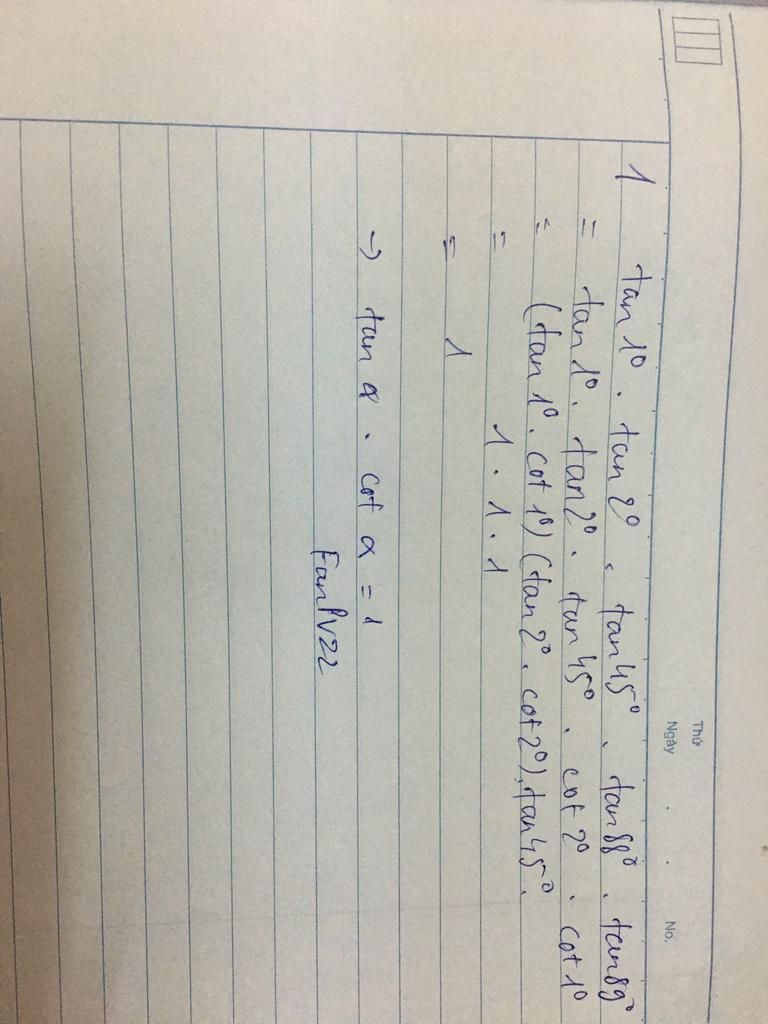 Thứ
Ngày . . No.
1 tan 1° . tan 2° . tan 45° . tan 88° . tan 89°
= tan 1° . tan 2° . tan 45° . cot 2° . cot 1°
= (tan 1° . cot 1°) (tan 2° . cot 2°) . tan 45° .
= 1 . 1 . 1
= 1
→ tan α . cot α = 1
FanPVZ2